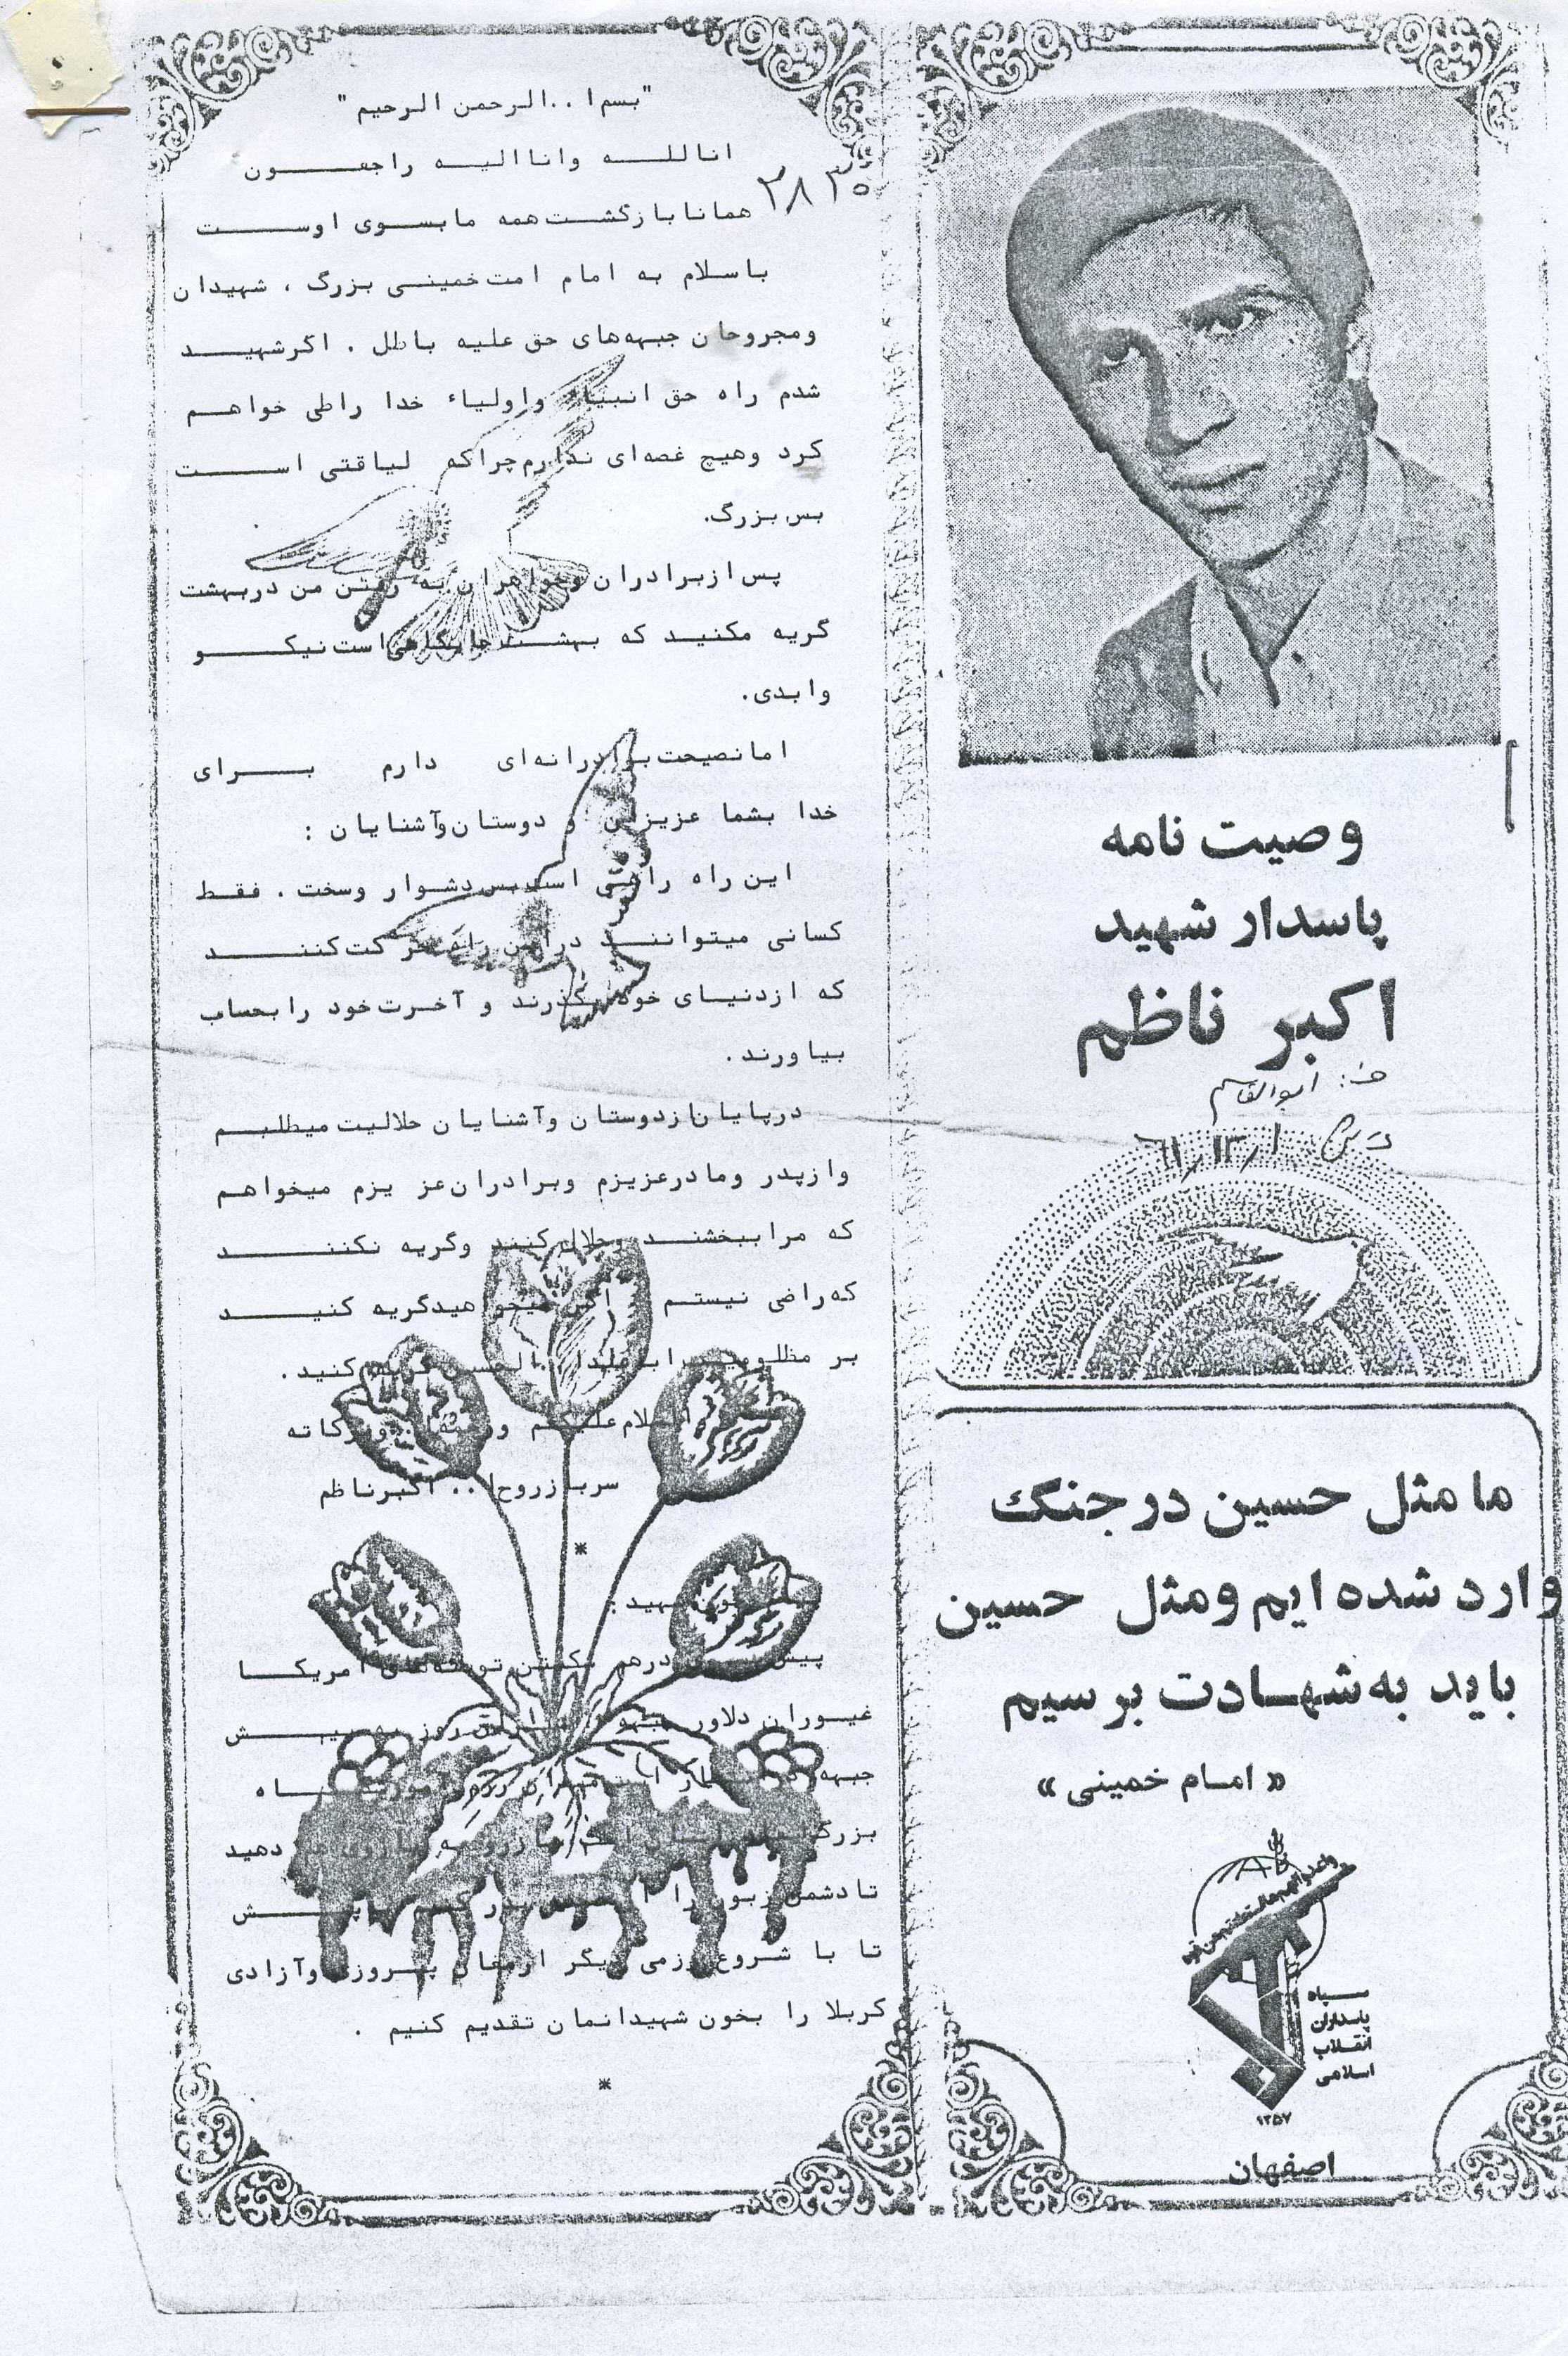 وصیت نامه
پاسدار شهید
اکبر ناظم
ف: ابوالقاسم
ما مثل حسین در جنگ
وارد شده ایم ومثل حسین
باید به شهادت برسیم
« امام خمینی »
سپاه
پاسداران
انقلاب
اسلامی
۱۳۵۷
اصفهان
"بسم ا . . الرحمن الرحیم "
انا للــه وانا الیــه راجعــون
همانا بازگشت همه ما بسوی اوست
با سلام به امام امت خمینی بزرگ ، شهیدان
ومجروحان جبهه‌های حق علیه باطل . اگر شهید
شدم راه حق انبیاء واولیاء خدا راطی خواهم
کرد وهیچ غصه‌ای ندارم چراکه لیاقتی است
بس بزرگ.
پس ازبرادران وخواهران به رفتن من دربهشت
گریه مکنید که بهشت جایگاهی است نیکو
وابدی.
اما نصیحت برادرانه‌ای دارم برای
خدا بشما عزیزان و دوستان وآشنایان :
این راه راهی است بس دشوار وسخت . فقط
کسانی میتوانند دراین راه حرکت کنند
که ازدنیای خود بگذرند و آخرت خود رابحساب
بیاورند .
درپایان ازدوستان وآشنایان حلالیت میطلبم
وازپدر ومادرعزیزم وبرادران عزیزم میخواهم
که مراببخشند وحلال کنند وگریه نکنند
که راضی نیستم اگر میخواهیدگریه کنید
بر مظلومیت اباعبدا . . الحسین گریه کنید .
والسلام علیکم و وبرکاته
سربازروح ا . . اکبرناظم
*
شهید :
پیش درهم شکستن توطئه‌های امریکا
غیوران دلاور جبهه روز به پیش
جبهه
بزرگ دهید
تادشمن زبون را
تا با شروع رزمی دیگر ارمغان پیروزی وآزادی
کربلا را بخون شهیدانمان تقدیم کنیم .
*